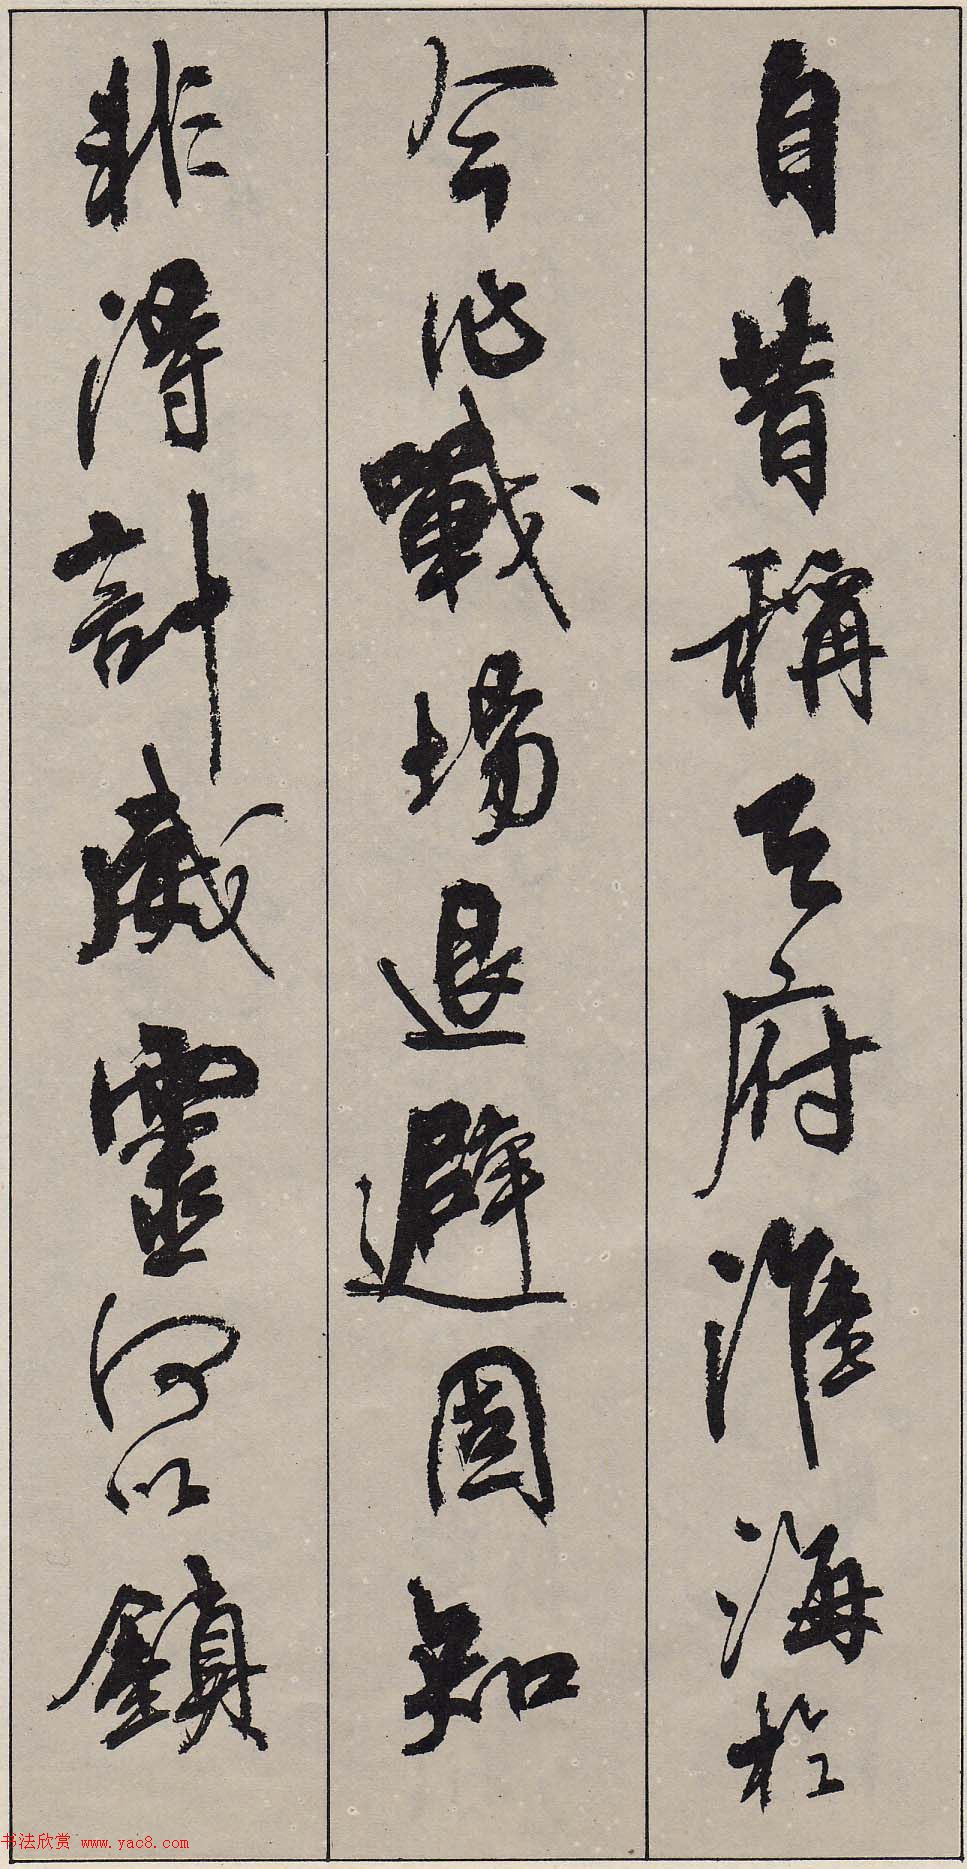 自昔稱天府淮海於
今化戰場退避固知
非得計威靈何以鎮
书法欣赏 www.yac8.com